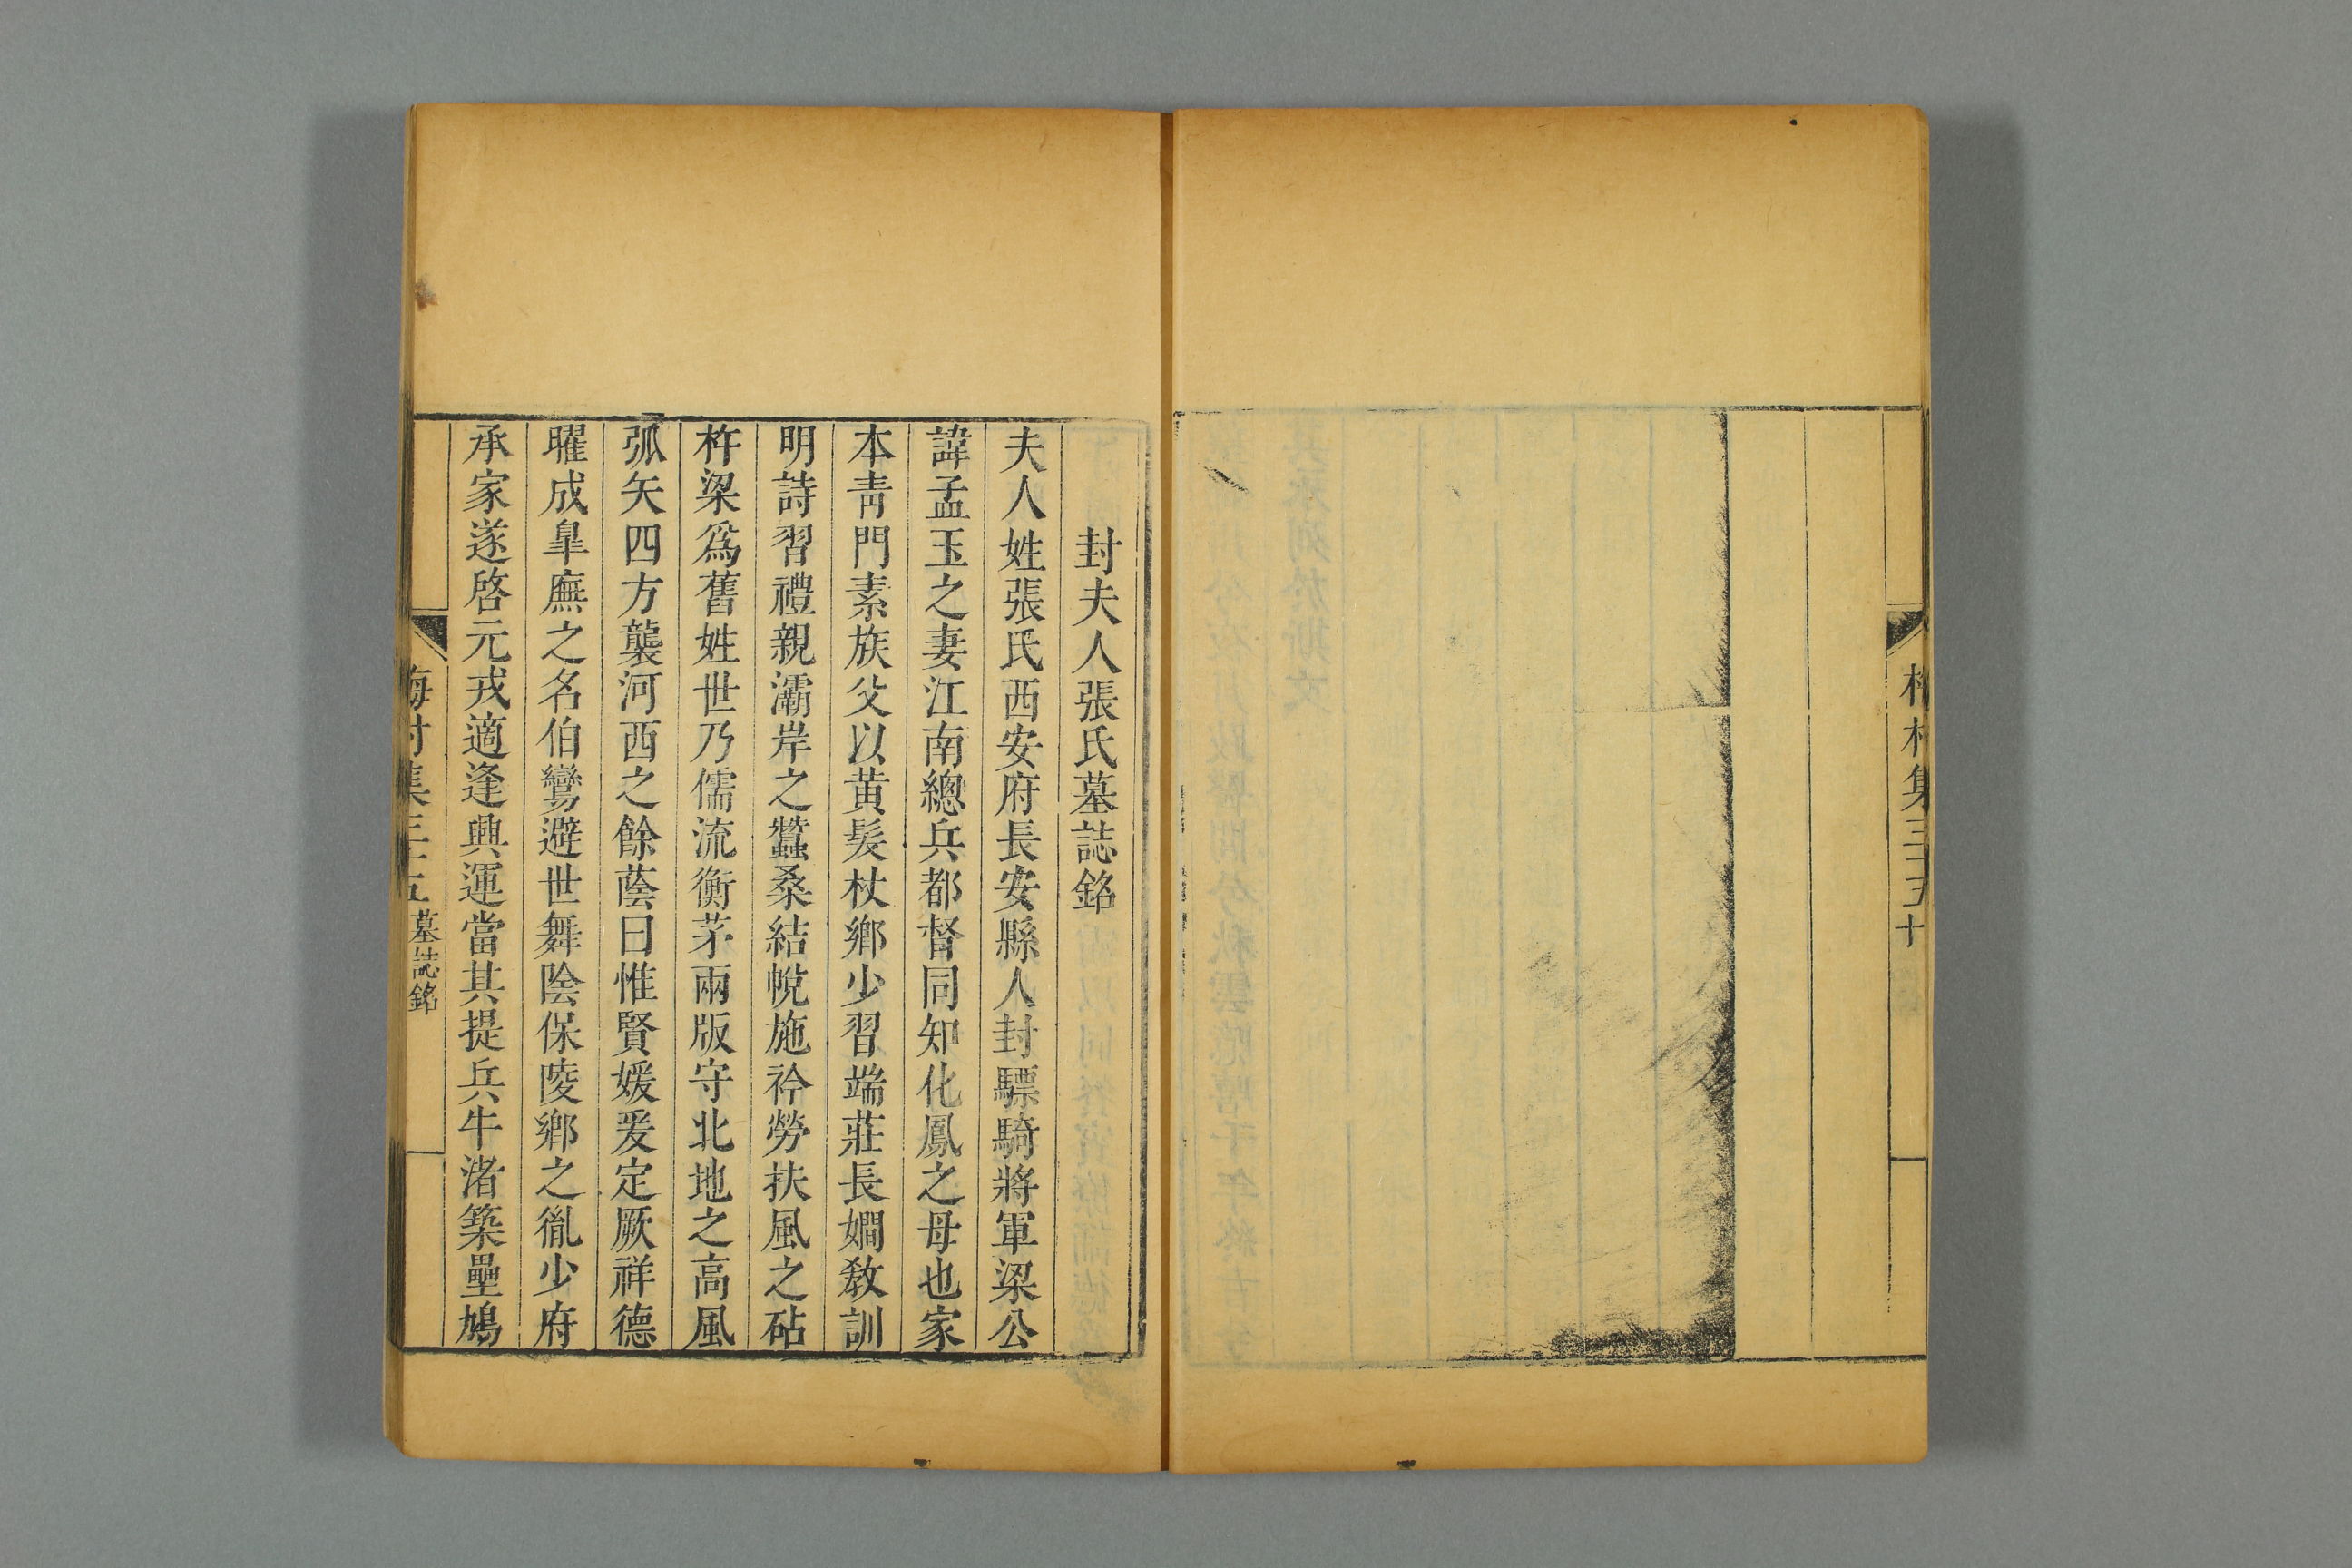 村集三十五十
封夫人張氏墓誌銘
夫人姓張氏西安府長安縣人封驃騎將軍梁公
諱孟玉之妻江南總兵都督同知化鳳之母也家
本靑門素族父以黃髮杖鄉少習端莊長嫺敎訓
明詩習禮親灞岸之蠶桑結帨施衿勞扶風之砧
杵梁爲舊姓世乃儒流衡茅兩版守北地之高風
弧矢四方襲河西之餘蔭曰惟賢媛爰定厥祥德
曜成臯廡之名伯鸞避世舞陰保陵鄉之胤少府
承家遂啓元戎適逢興運當其提兵牛渚築壘鳩
梅村集三十五墓誌銘